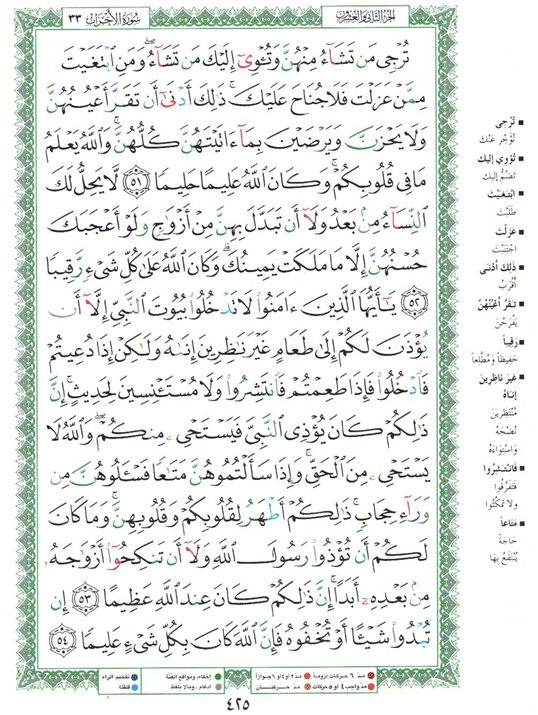 الجزء الثاني والعشرون
سورة الأحزاب ٣٣
تُرْجِى مَن تَشَآءُ مِنْهُنَّ وَتُـْٔوِىٓ إِلَيْكَ مَن تَشَآءُ ۖ وَمَنِ ٱبْتَغَيْتَ
مِمَّنْ عَزَلْتَ فَلَا جُنَاحَ عَلَيْكَ ۚ ذَٰلِكَ أَدْنَىٰٓ أَن تَقَرَّ أَعْيُنُهُنَّ
وَلَا يَحْزَنَّ وَيَرْضَيْنَ بِمَآ ءَاتَيْتَهُنَّ كُلُّهُنَّ ۚ وَٱللَّهُ يَعْلَمُ
مَا فِى قُلُوبِكُمْ ۚ وَكَانَ ٱللَّهُ عَلِيمًا حَلِيمًا ٥١ لَّا يَحِلُّ لَكَ
ٱلنِّسَآءُ مِنۢ بَعْدُ وَلَآ أَن تَبَدَّلَ بِهِنَّ مِنْ أَزْوَٰجٍ وَلَوْ أَعْجَبَكَ
حُسْنُهُنَّ إِلَّا مَا مَلَكَتْ يَمِينُكَ ۗ وَكَانَ ٱللَّهُ عَلَىٰ كُلِّ شَىْءٍ رَّقِيبًا
٥٢ يَـٰٓأَيُّهَا ٱلَّذِينَ ءَامَنُوا۟ لَا تَدْخُلُوا۟ بُيُوتَ ٱلنَّبِىِّ إِلَّآ أَن
يُؤْذَنَ لَكُمْ إِلَىٰ طَعَامٍ غَيْرَ نَـٰظِرِينَ إِنَىٰهُ وَلَـٰكِنْ إِذَا دُعِيتُمْ
فَٱدْخُلُوا۟ فَإِذَا طَعِمْتُمْ فَٱنتَشِرُوا۟ وَلَا مُسْتَـْٔنِسِينَ لِحَدِيثٍ ۚ إِنَّ
ذَٰلِكُمْ كَانَ يُؤْذِى ٱلنَّبِىَّ فَيَسْتَحْىِۦ مِنكُمْ ۖ وَٱللَّهُ لَا
يَسْتَحْىِۦ مِنَ ٱلْحَقِّ ۚ وَإِذَا سَأَلْتُمُوهُنَّ مَتَـٰعًا فَسْـَٔلُوهُنَّ مِن
وَرَآءِ حِجَابٍ ۚ ذَٰلِكُمْ أَطْهَرُ لِقُلُوبِكُمْ وَقُلُوبِهِنَّ ۚ وَمَا كَانَ
لَكُمْ أَن تُؤْذُوا۟ رَسُولَ ٱللَّهِ وَلَآ أَن تَنكِحُوٓا۟ أَزْوَٰجَهُۥ
مِنۢ بَعْدِهِۦٓ أَبَدًا ۚ إِنَّ ذَٰلِكُمْ كَانَ عِندَ ٱللَّهِ عَظِيمًا ٥٣ إِن
تُبْدُوا۟ شَيْـًٔا أَوْ تُخْفُوهُ فَإِنَّ ٱللَّهَ كَانَ بِكُلِّ شَىْءٍ عَلِيمًا ٥٤
■ تُرْجِي
تُؤَخِّرُ عَنْكَ
■ تُؤْوِي إليك
تَضُمُّ إليك
■ ابْتَغَيْتَ
طَلَبْتَ
■ عَزَلْتَ
اجْتَنَبْتَ
■ ذَلِكَ أَدْنَى
أَقْرَبُ
■ تَقَرَّ أَعْيُنُهُنَّ
يَفْرَحْنَ
■ رَقِيباً
حَفِيظاً وَمُطَّلِعاً
■ غَيرَ نَاظِرِينَ
إِنَاهُ
مُنْتَظِرِينَ
نُضْجَهُ
وَاسْتِوَاءَهُ
■ فَانْتَشِرُوا
فَتَفَرَّقُوا
ولا تمكُثُوا
■ مَتَاعاً
حَاجَةً
يُنْتَفَعُ بِهَا
مدّ ٦ حركات لزوماً
مدّ ٢ أو ٤ أو ٦ جوازاً
إخفاء، ومواقع الغنّة
تفخيم الراء
مدّ واجب ٤ أو ٥ حركات
مدّ حركتان
إدغام، وما لا يلفظ
قلقلة
٤٢٥